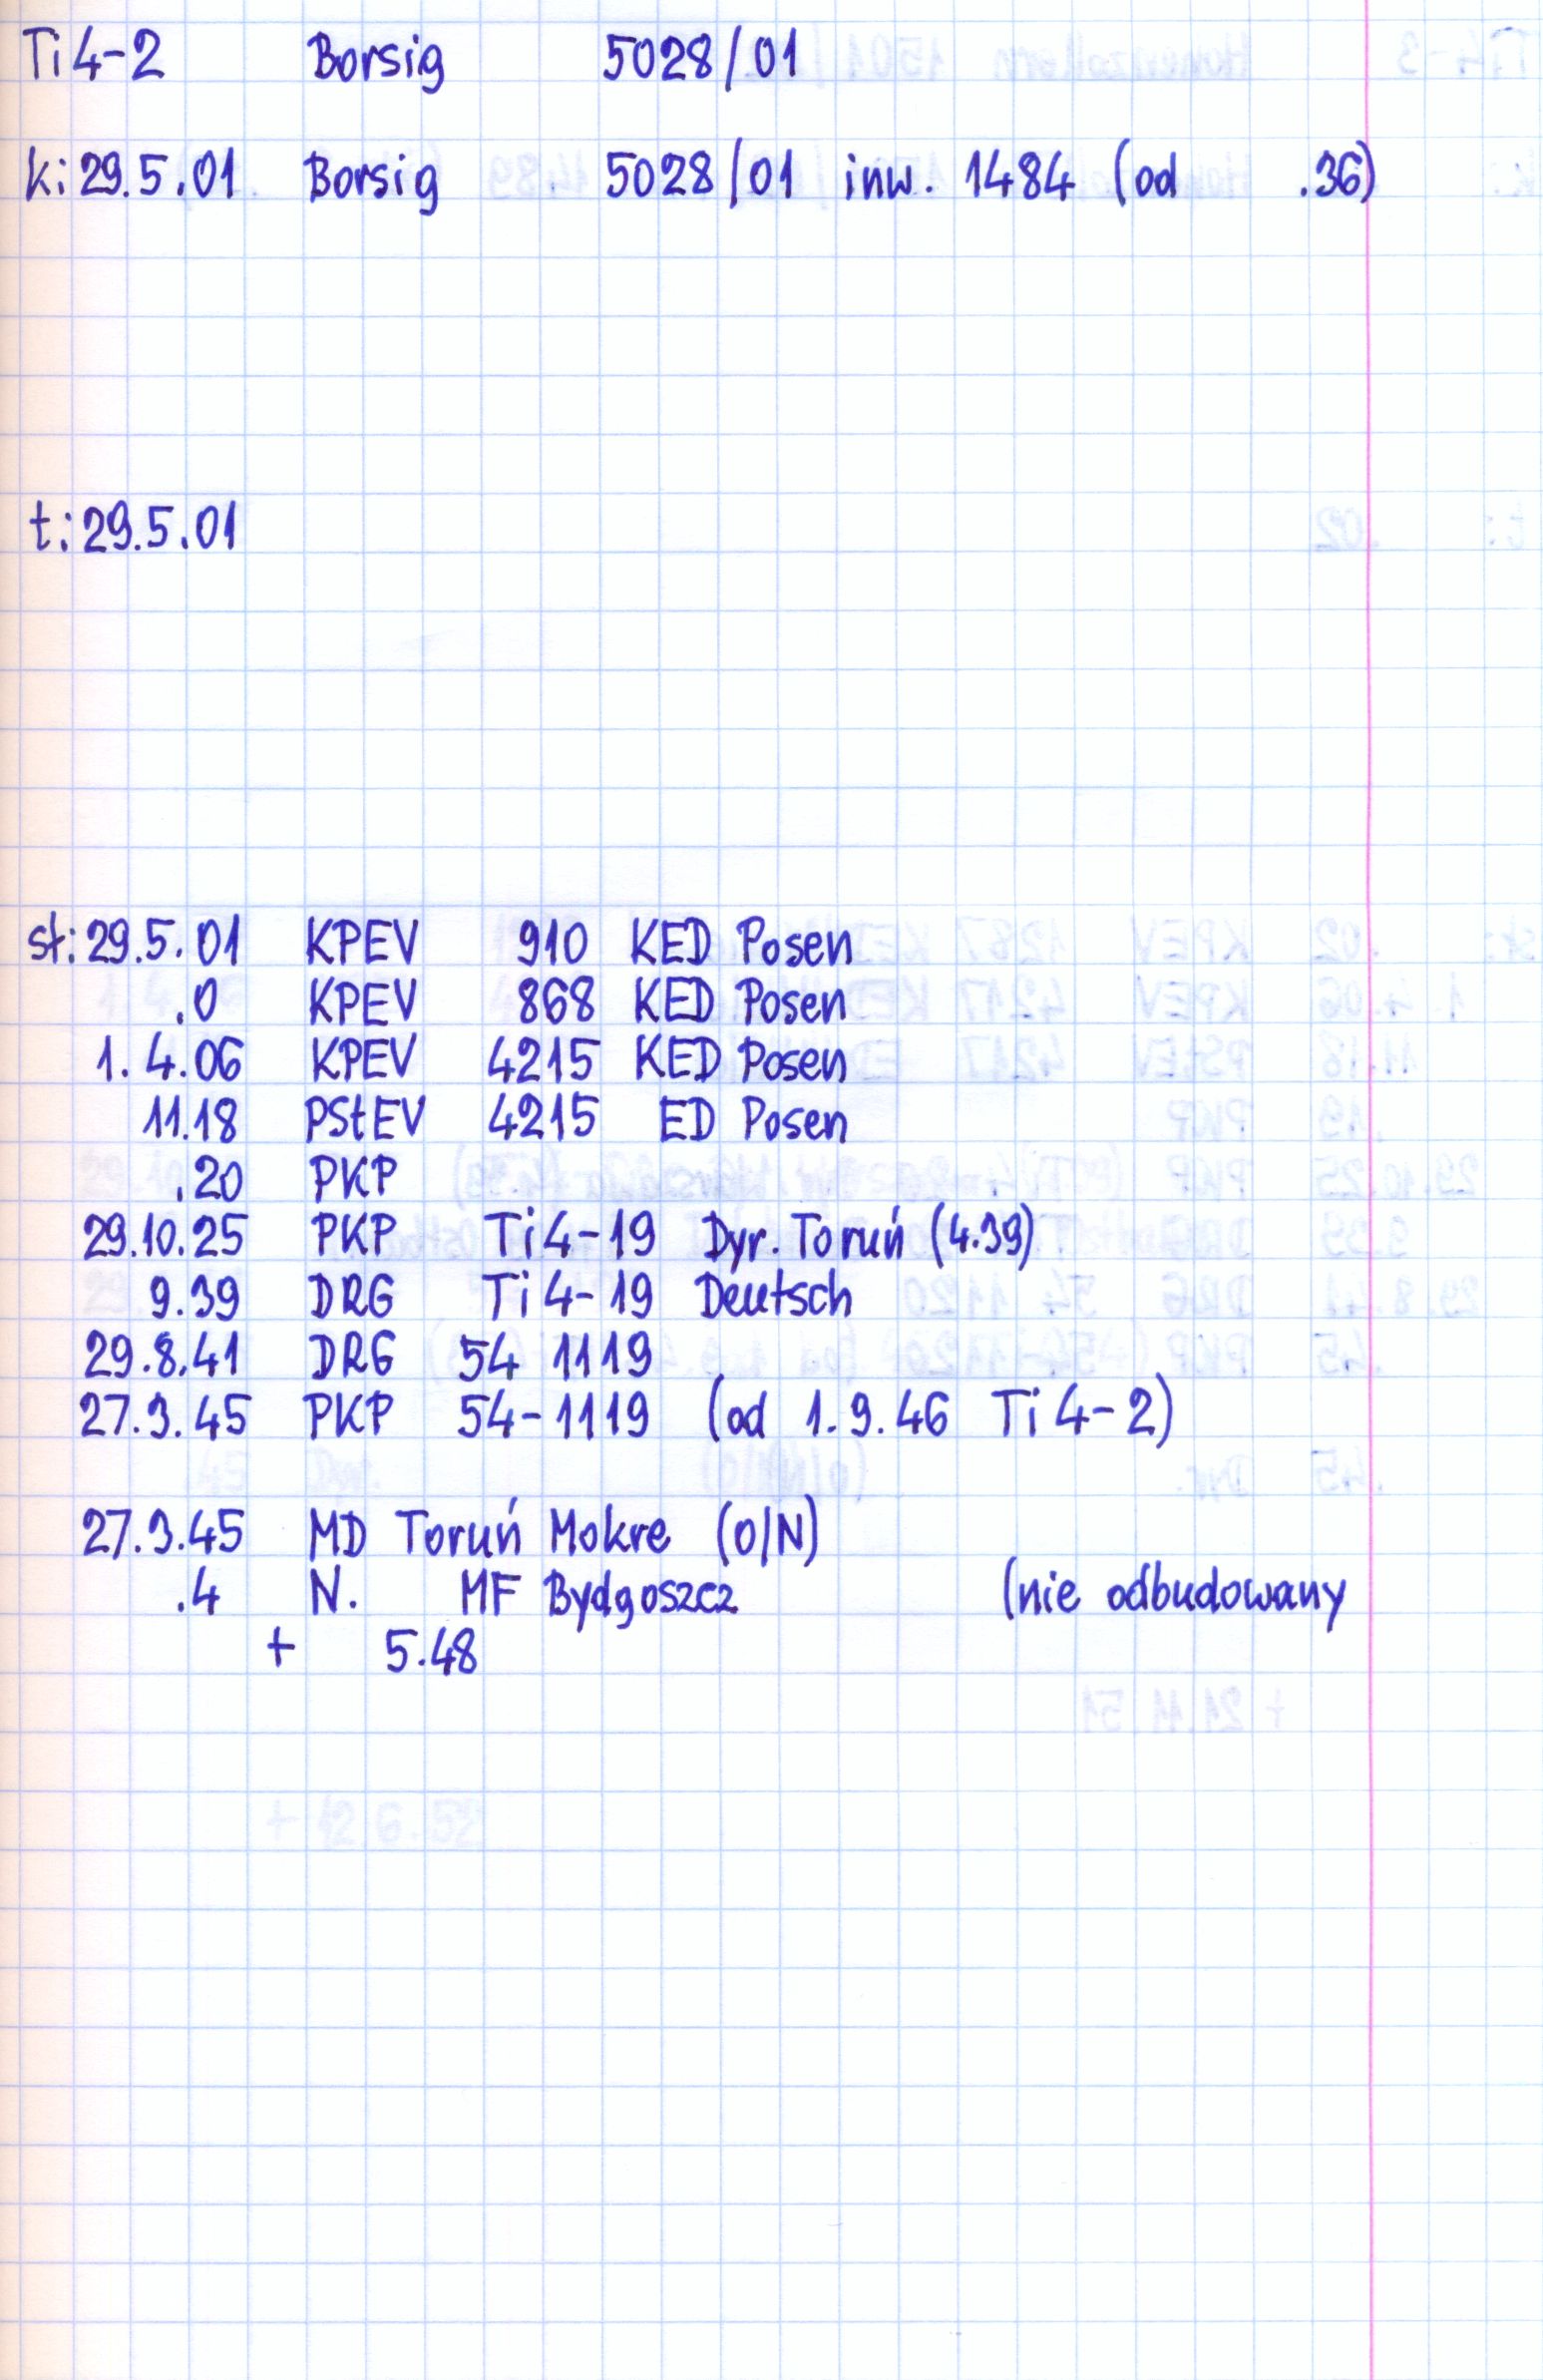 Ti4-2 Borsig 5028/01
k: 29.5.01 Borsig 5028/01 inw. 1484 (od .36)
t: 29.5.01
st: 29.5.01 KPEV 910 KED Posen
.0 KPEV 868 KED Posen
1.4.06 KPEV 4215 KED Posen
11.18 PStEV 4215 ED Posen
.20 PKP
29.10.25 PKP Ti4-19 Dyr. Toruń (4.39)
9.39 DRG Ti4-19 Deutsch
29.8.41 DRG 54 1119
27.3.45 PKP 54-1119 (od 1.9.46 Ti4-2)
27.3.45 MD Toruń Mokre (O/N)
.4 N. MF Bydgoszcz (nie odbudowany
+ 5.48